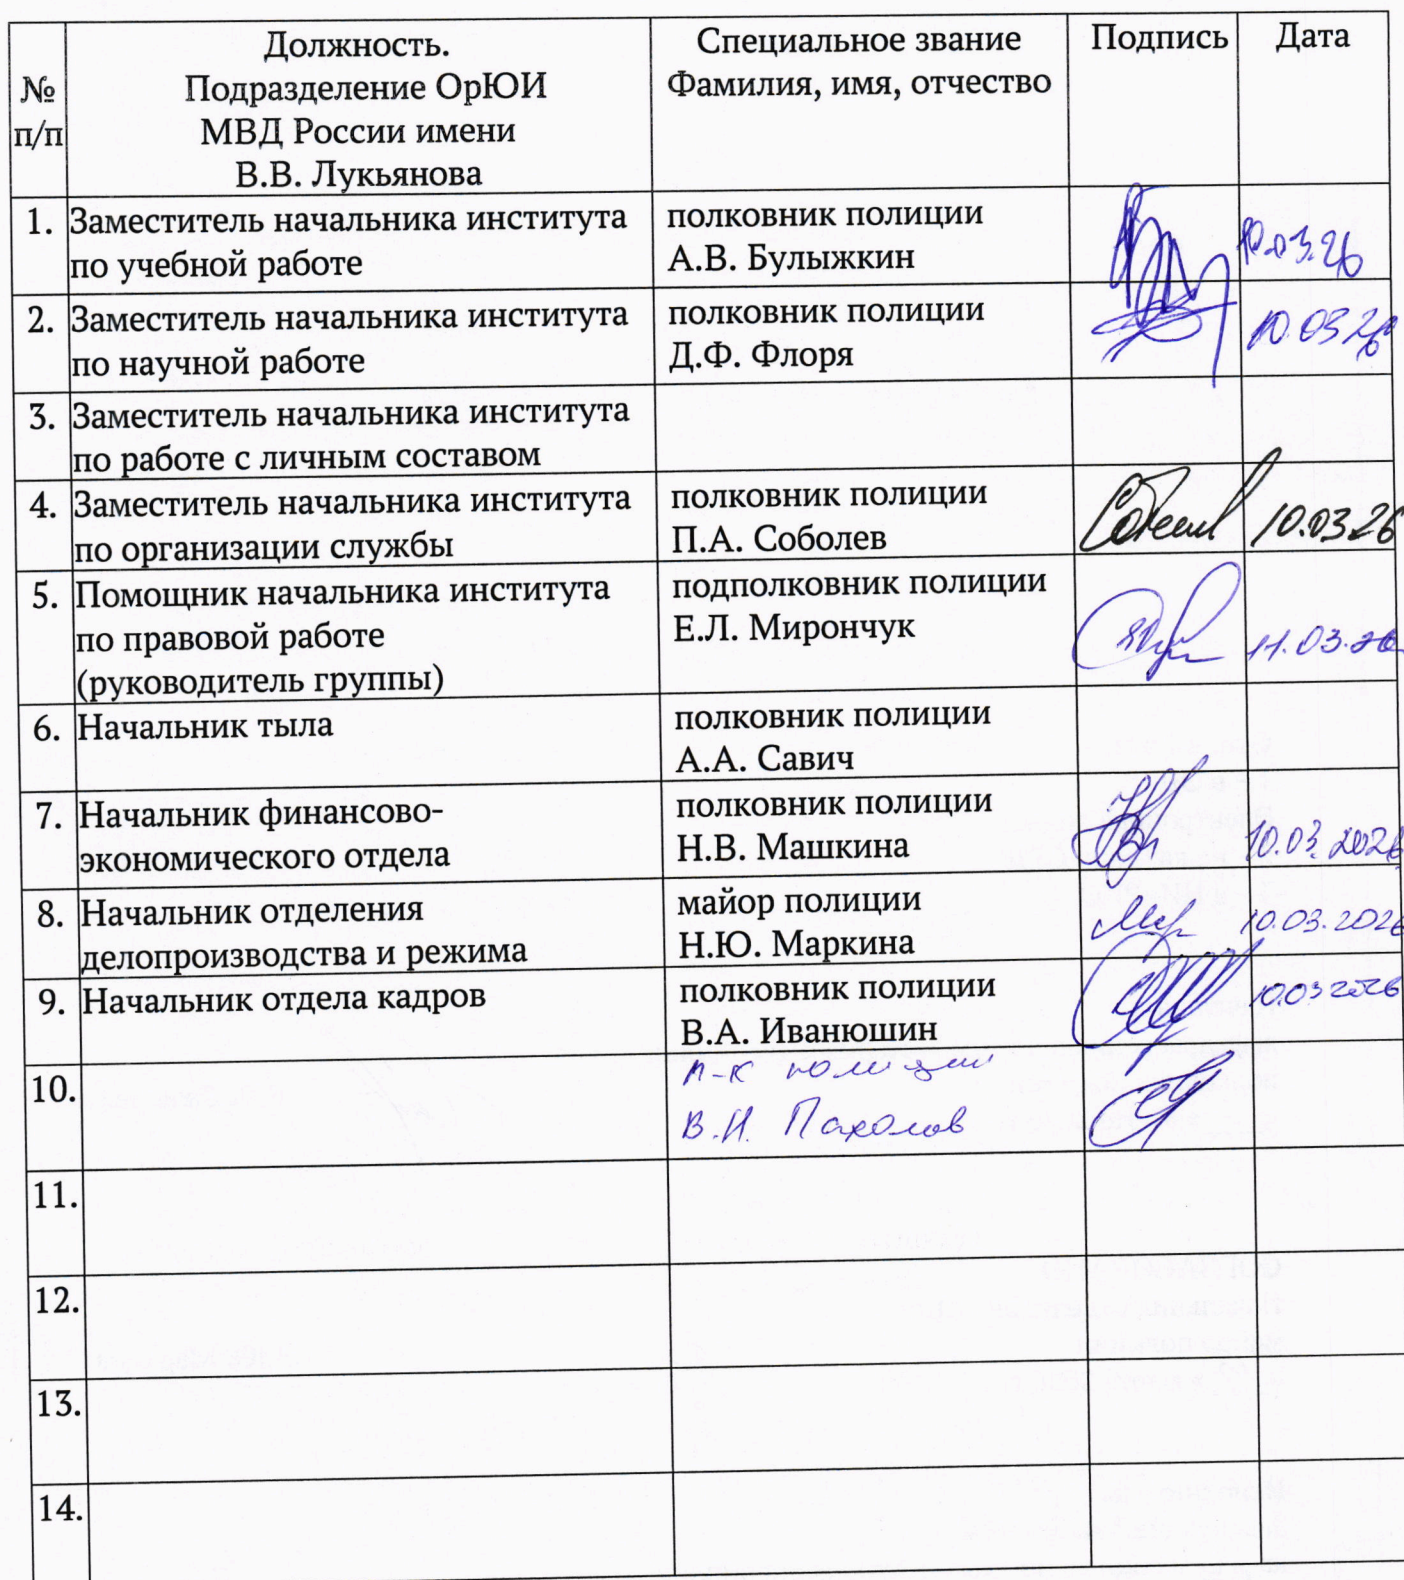 №
п/п
Должность.
Подразделение ОрЮИ
МВД России имени
В.В. Лукьянова
Специальное звание
Фамилия, имя, отчество
Подпись
Дата
1.
Заместитель начальника института
по учебной работе
полковник полиции
А.В. Булыжкин
10.03.26
2.
Заместитель начальника института
по научной работе
полковник полиции
Д.Ф. Флоря
10.03 26
3.
Заместитель начальника института
по работе с личным составом
4.
Заместитель начальника института
по организации службы
полковник полиции
П.А. Соболев
10.03.26
5.
Помощник начальника института
по правовой работе
(руководитель группы)
подполковник полиции
Е.Л. Мирончук
11.03.26
6.
Начальник тыла
полковник полиции
А.А. Савич
7.
Начальник финансово-
экономического отдела
полковник полиции
Н.В. Машкина
10.03.2026
8.
Начальник отделения
делопроизводства и режима
майор полиции
Н.Ю. Маркина
10.03.2026
9.
Начальник отдела кадров
полковник полиции
В.А. Иванюшин
10.03 2026
10.
п-к полиции
В.И. Пахолов
11.
12.
13.
14.